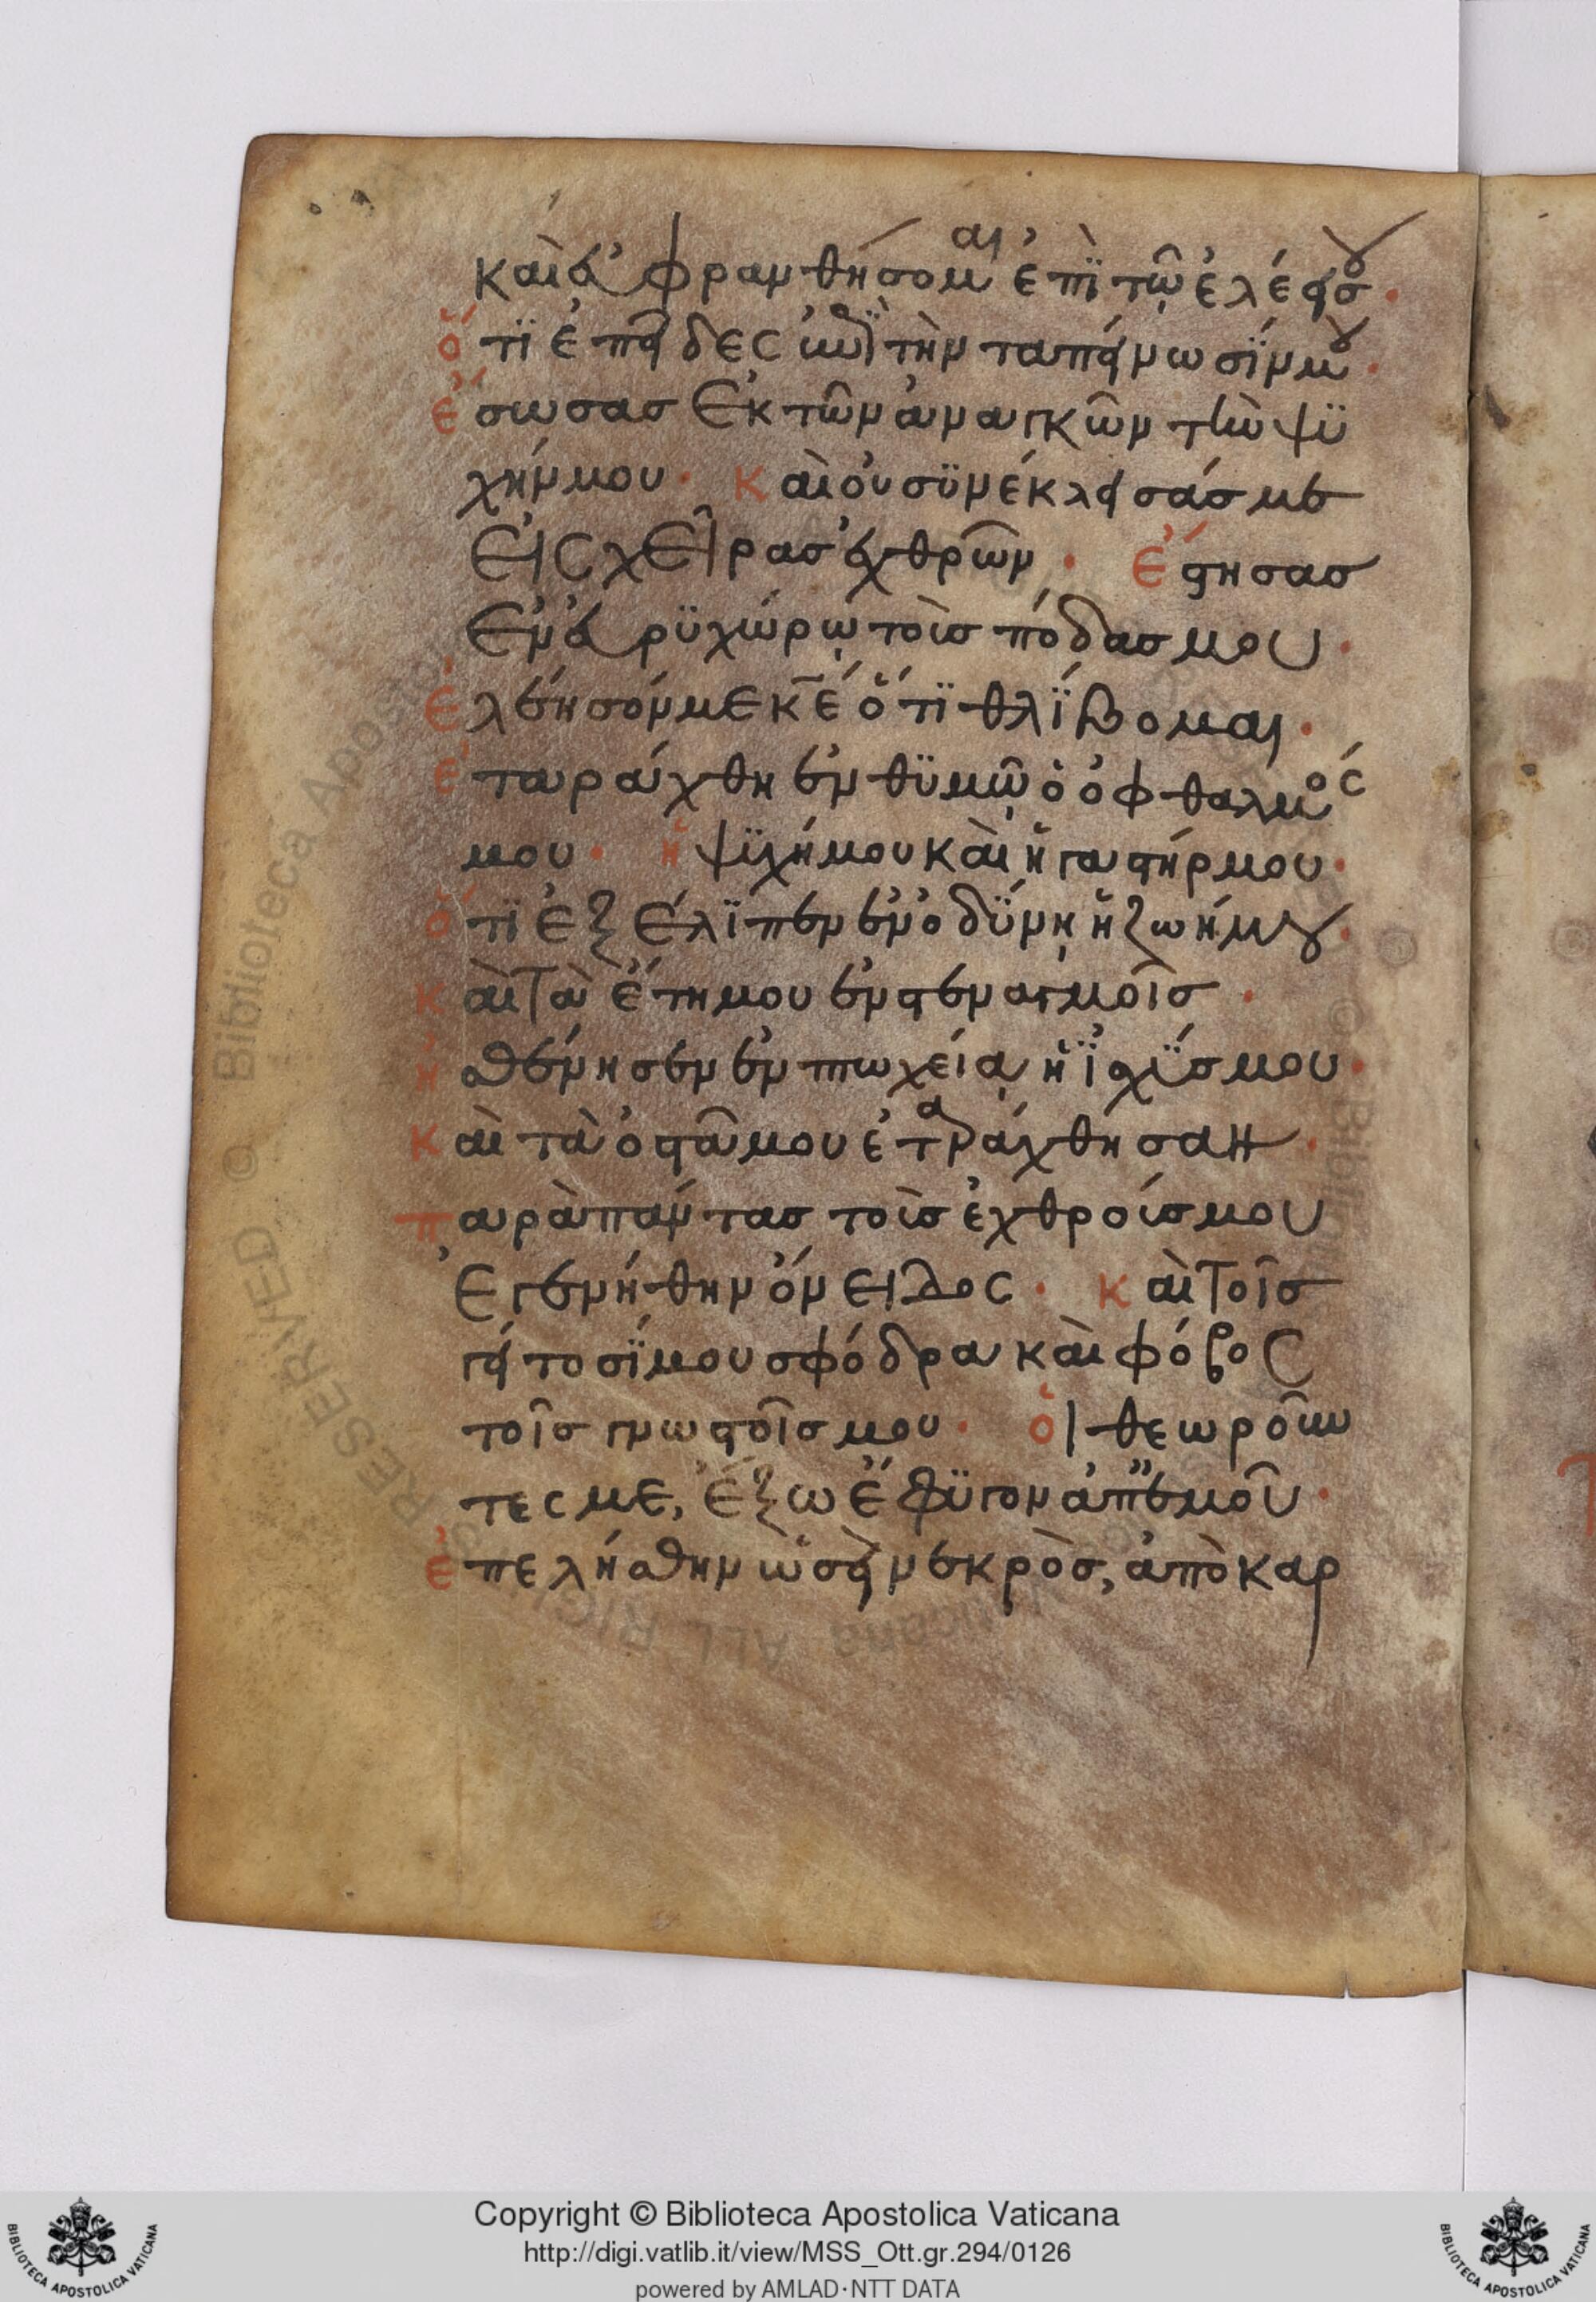 και ευφρανθήσομαι ἐπὶ τῷ ἐλέει σου·
ὅτϊ ἐπεῖδες ἐπὶ τὴν ταπείνωσίν μου·
ἔσωσας ἐκ τῶν ἀναγκῶν τὴν ψϋ
χήν μου· Καὶ οὐ σϋνέκλεισάς με
εἰς χεῖρας ἐχθρῶν· Ἔστησας
ἐν εὐρϋχώρῳ τοὺς πόδας μου·
Ἐλέησόν με κε ὅτϊ θλίβομαι·
ἐταράχθη ἐν θϋμῷ ὁ ὀφθαλμός
μου· ἡ ψϋχή μου καὶ ἡ γαστήρ μου·
ὅτϊ ἐξέλϊπεν ἐν ὀδύνῃ ἡ ζωή μου·
Καὶ τὰ ἔτη μου ἐν στεναγμοῖς·
ἠσθένησεν ἐν πτωχείᾳ ἡ ἰσχύς μου·
Καὶ τὰ ὀστᾶ μου ἐταράχθησαν·
παρὰ πάντας τοὺς ἐχθρούς μου
ἐγενήθην ὄνειδος· Καὶ τοῖς
γείτοσί μου σφόδρα καὶ φόβος
τοῖς γνωστοῖς μου· ὁι θεωροῦν
τες με, ἔξω ἔφϋγον ἀπ' ἐμοῦ·
ἐπελήσθην ὡσεὶ νεκρὸς, ἀπὸ καρ
Copyright © Biblioteca Apostolica Vaticana
http://digi.vatlib.it/view/MSS_Ott.gr.294/0126
powered by AMLAD·NTT DATA